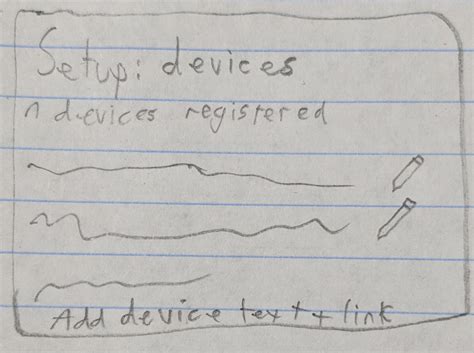 Setup: devices
n devices registered
Add device text + link